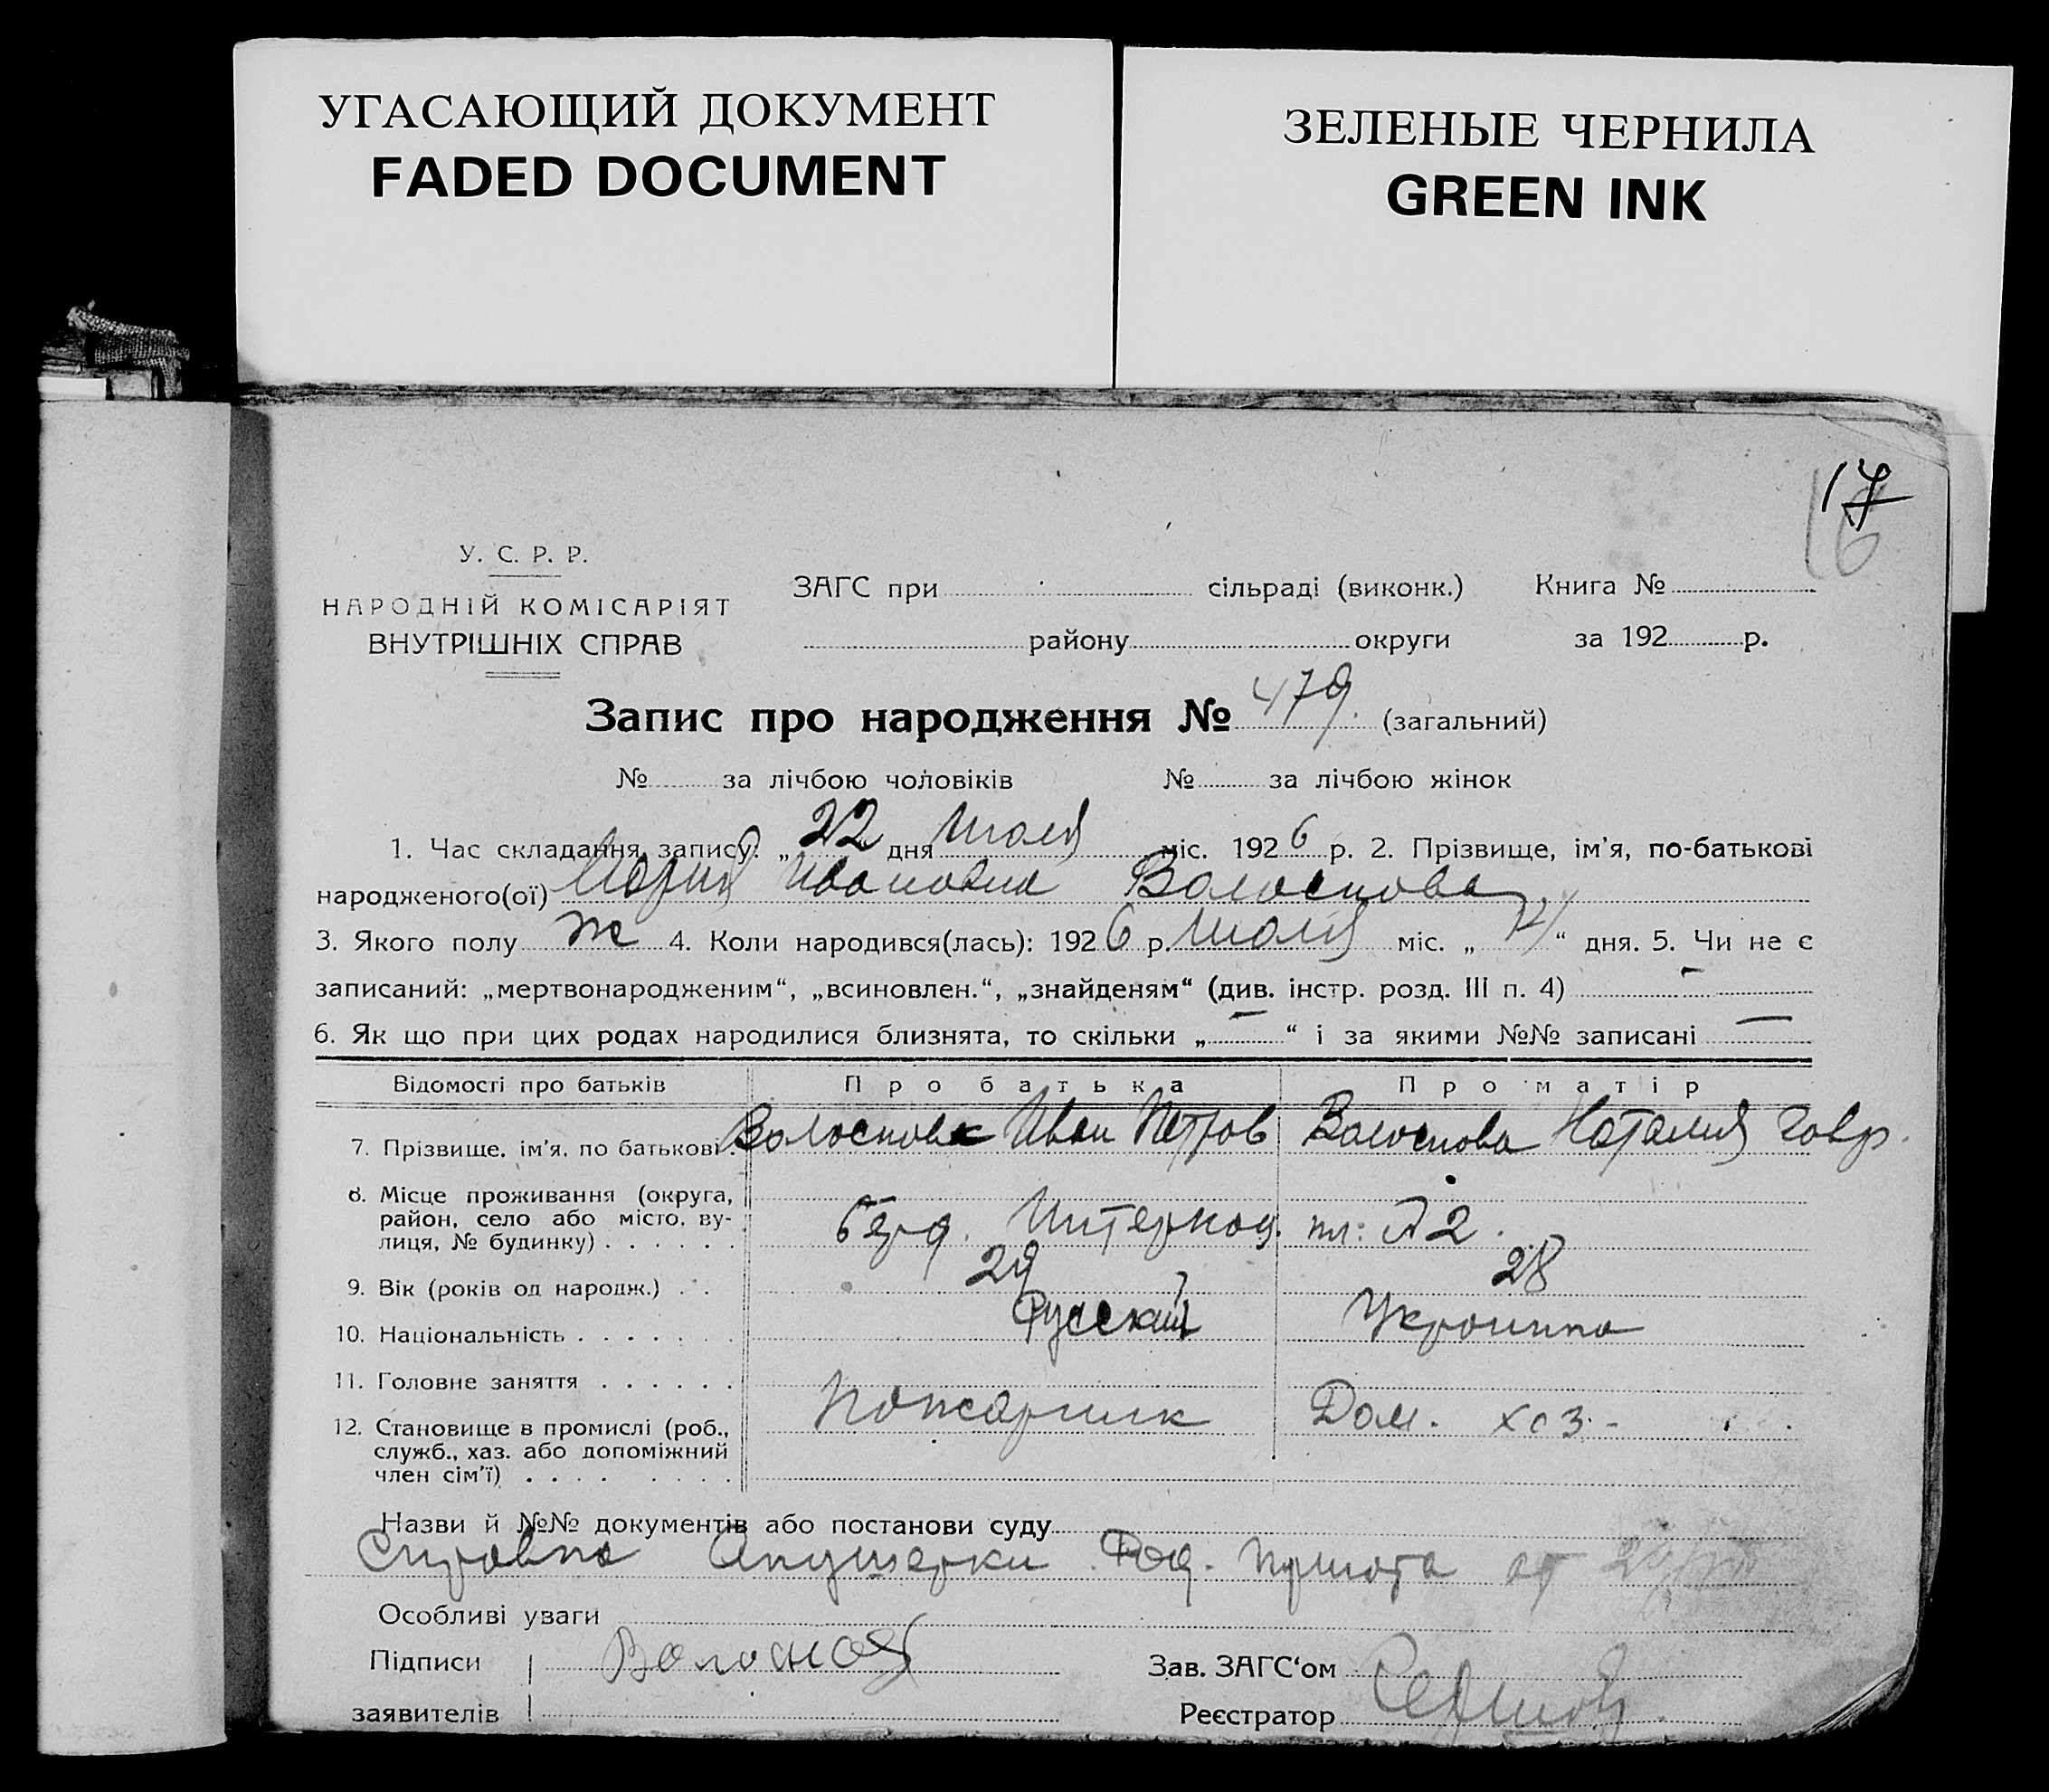 УГАСАЮЩИЙ ДОКУМЕНТ
FADED DOCUMENT
ЗЕЛЕНЫЕ ЧЕРНИЛА
GREEN INK
17
16
У. С. Р. Р.
НАРОДНІЙ КОМІСАРІЯТ
ВНУТРІШНІХ СПРАВ
ЗАГС при сільраді (виконк.) Книга №
району округи за 192 р.
Запис про народження № 479. (загальний)
№ за лічбою чоловіків № за лічбою жінок
1. Час складання запису: „ 22 дня Июля міс. 1926 р. 2. Прізвище, ім'я, по-батькові
народженого(ої) Мария Ивановна
3. Якого полу ж 4. Коли народився(лась): 1926 р. Июля міс. „ “ дня. 5. Чи не є
записаний: „мертвонародженим“, „всиновлен.“, „знайденям“ (див. інстр. розд. III п. 4) —
6. Як що при цих родах народилися близнята, то скільки „ — “ і за якими №№ записані —
Відомості про батьків Про батька Про матір
7. Прізвище, ім'я, по батькові . Иван Петров Наталия Гавр.
8. Місце проживання (округа,
район, село або місто, ву-
лиця, № будинку) . . . . . .
пл:
9. Вік (років од народж.) . . 29 28
10. Національність . . . . . . Русский Украинка
11. Головне заняття . . . . . .
Пожарник Дом. хоз.
12. Становище в промислі (роб.,
служб., хаз. або допоміжний
член сім'ї) . . . . . . . .
Назви й №№ документів або постанови суду
Справка Акушерки Род. приюта от
Особливі уваги
Підписи
заявителів
Зав. ЗАГС‘ом
Реєстратор